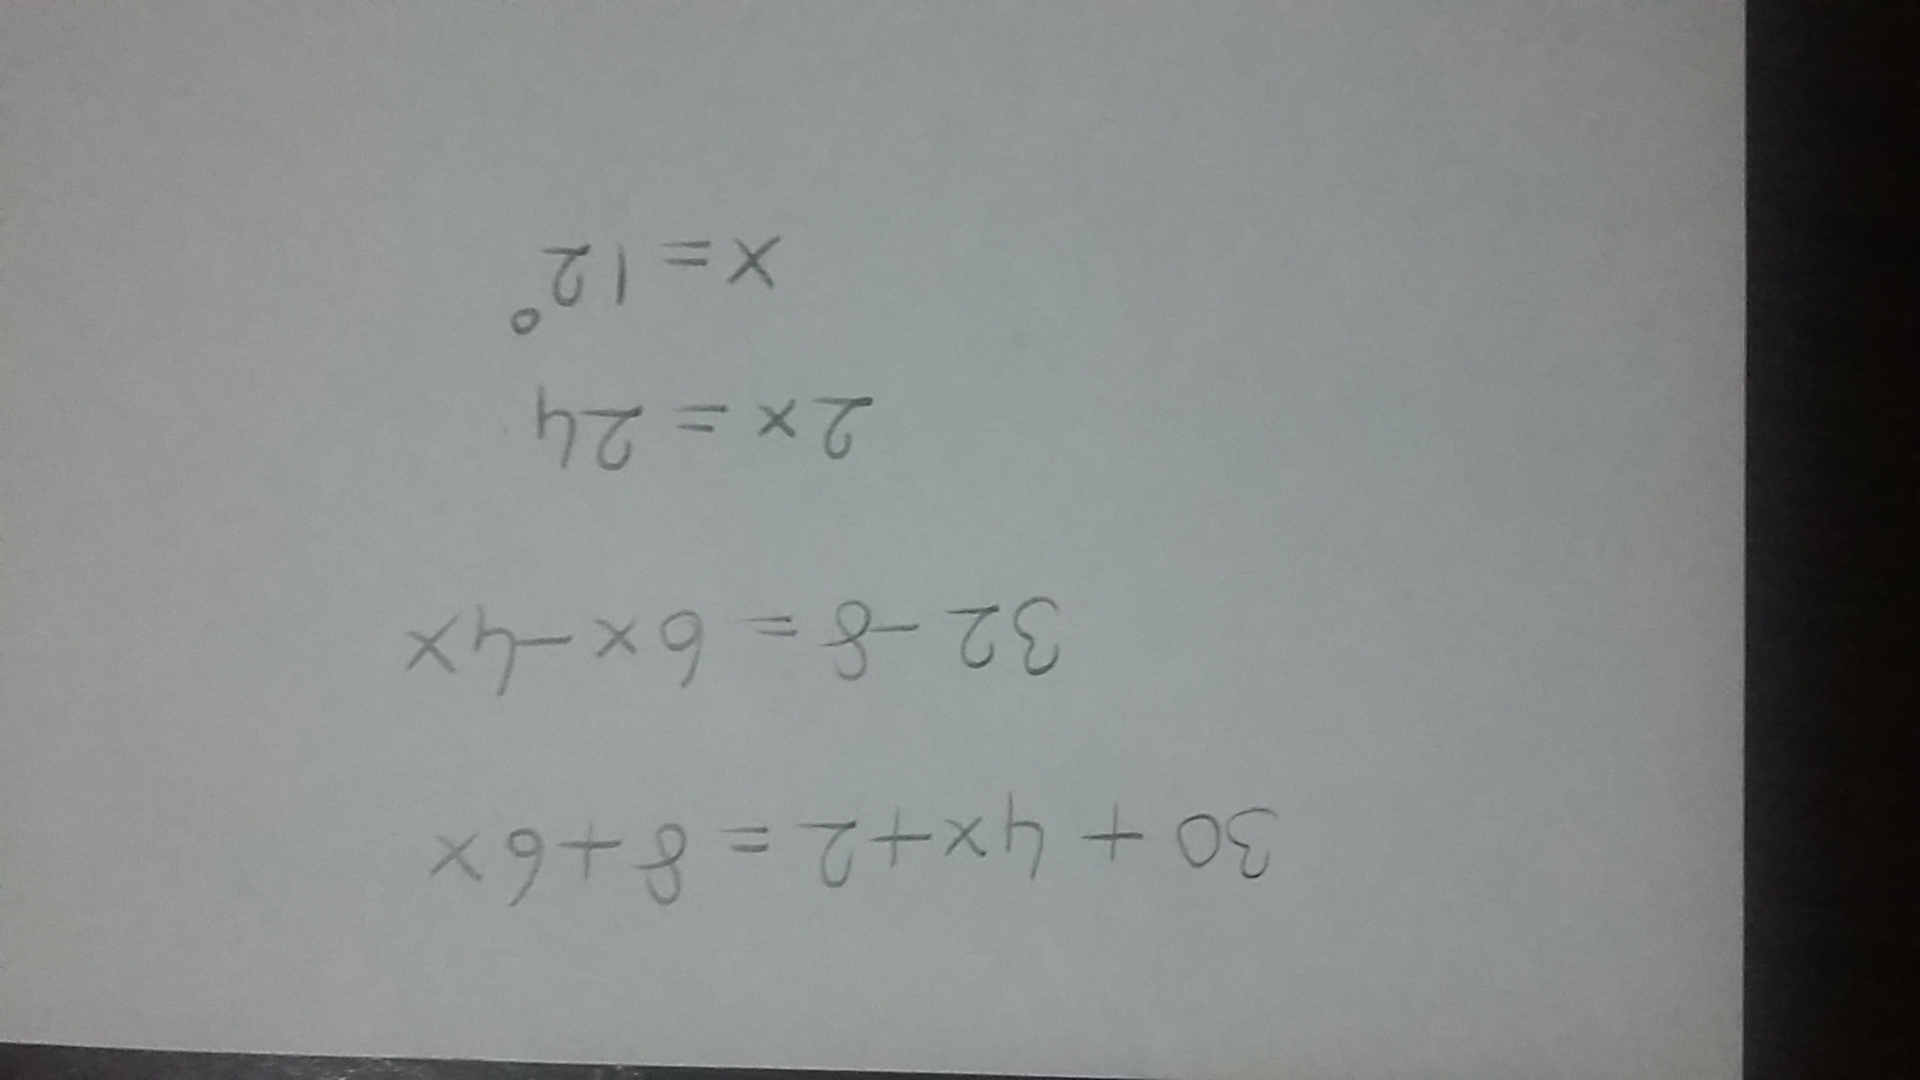 30 + 4x + 2 = 8 + 6x
32 - 8 = 6x - 4x
2x = 24
x = 12°